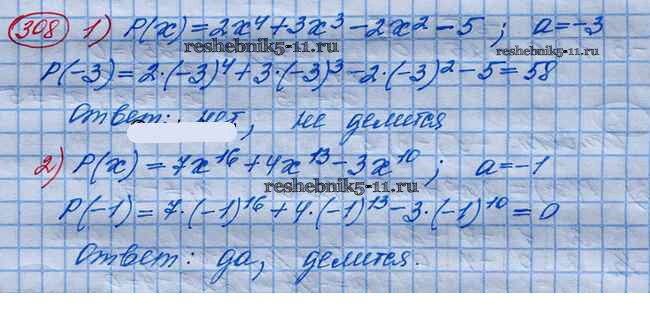 308 1) P(x) = 2x⁴ + 3x³ - 2x² - 5 ; a = -3
reshebnik5-11.ru
reshebnik5-11.ru
P(-3) = 2·(-3)⁴ + 3·(-3)³ - 2·(-3)² - 5 = 58
Ответ: нет, не делится
2) P(x) = 7x¹⁶ + 4x¹³ - 3x¹⁰ ; a = -1
reshebnik5-11.ru
P(-1) = 7·(-1)¹⁶ + 4·(-1)¹³ - 3·(-1)¹⁰ = 0
Ответ: да, делится.